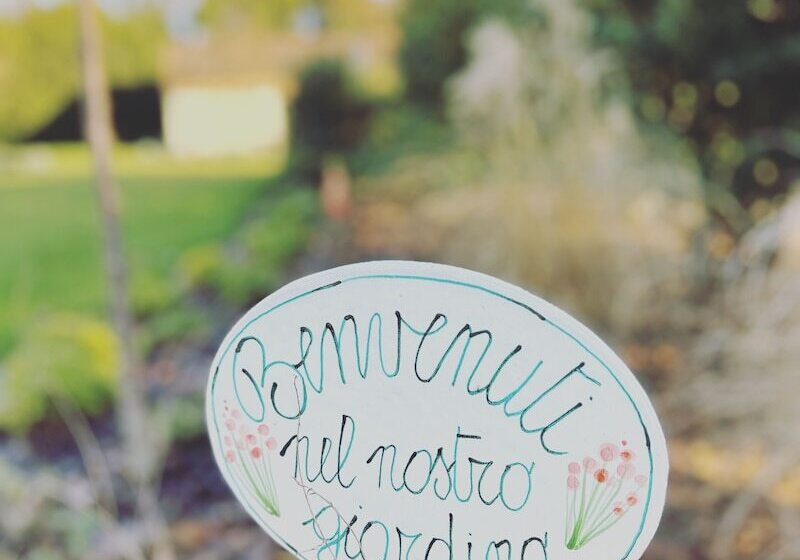 Benvenuti
nel nostro
giardino